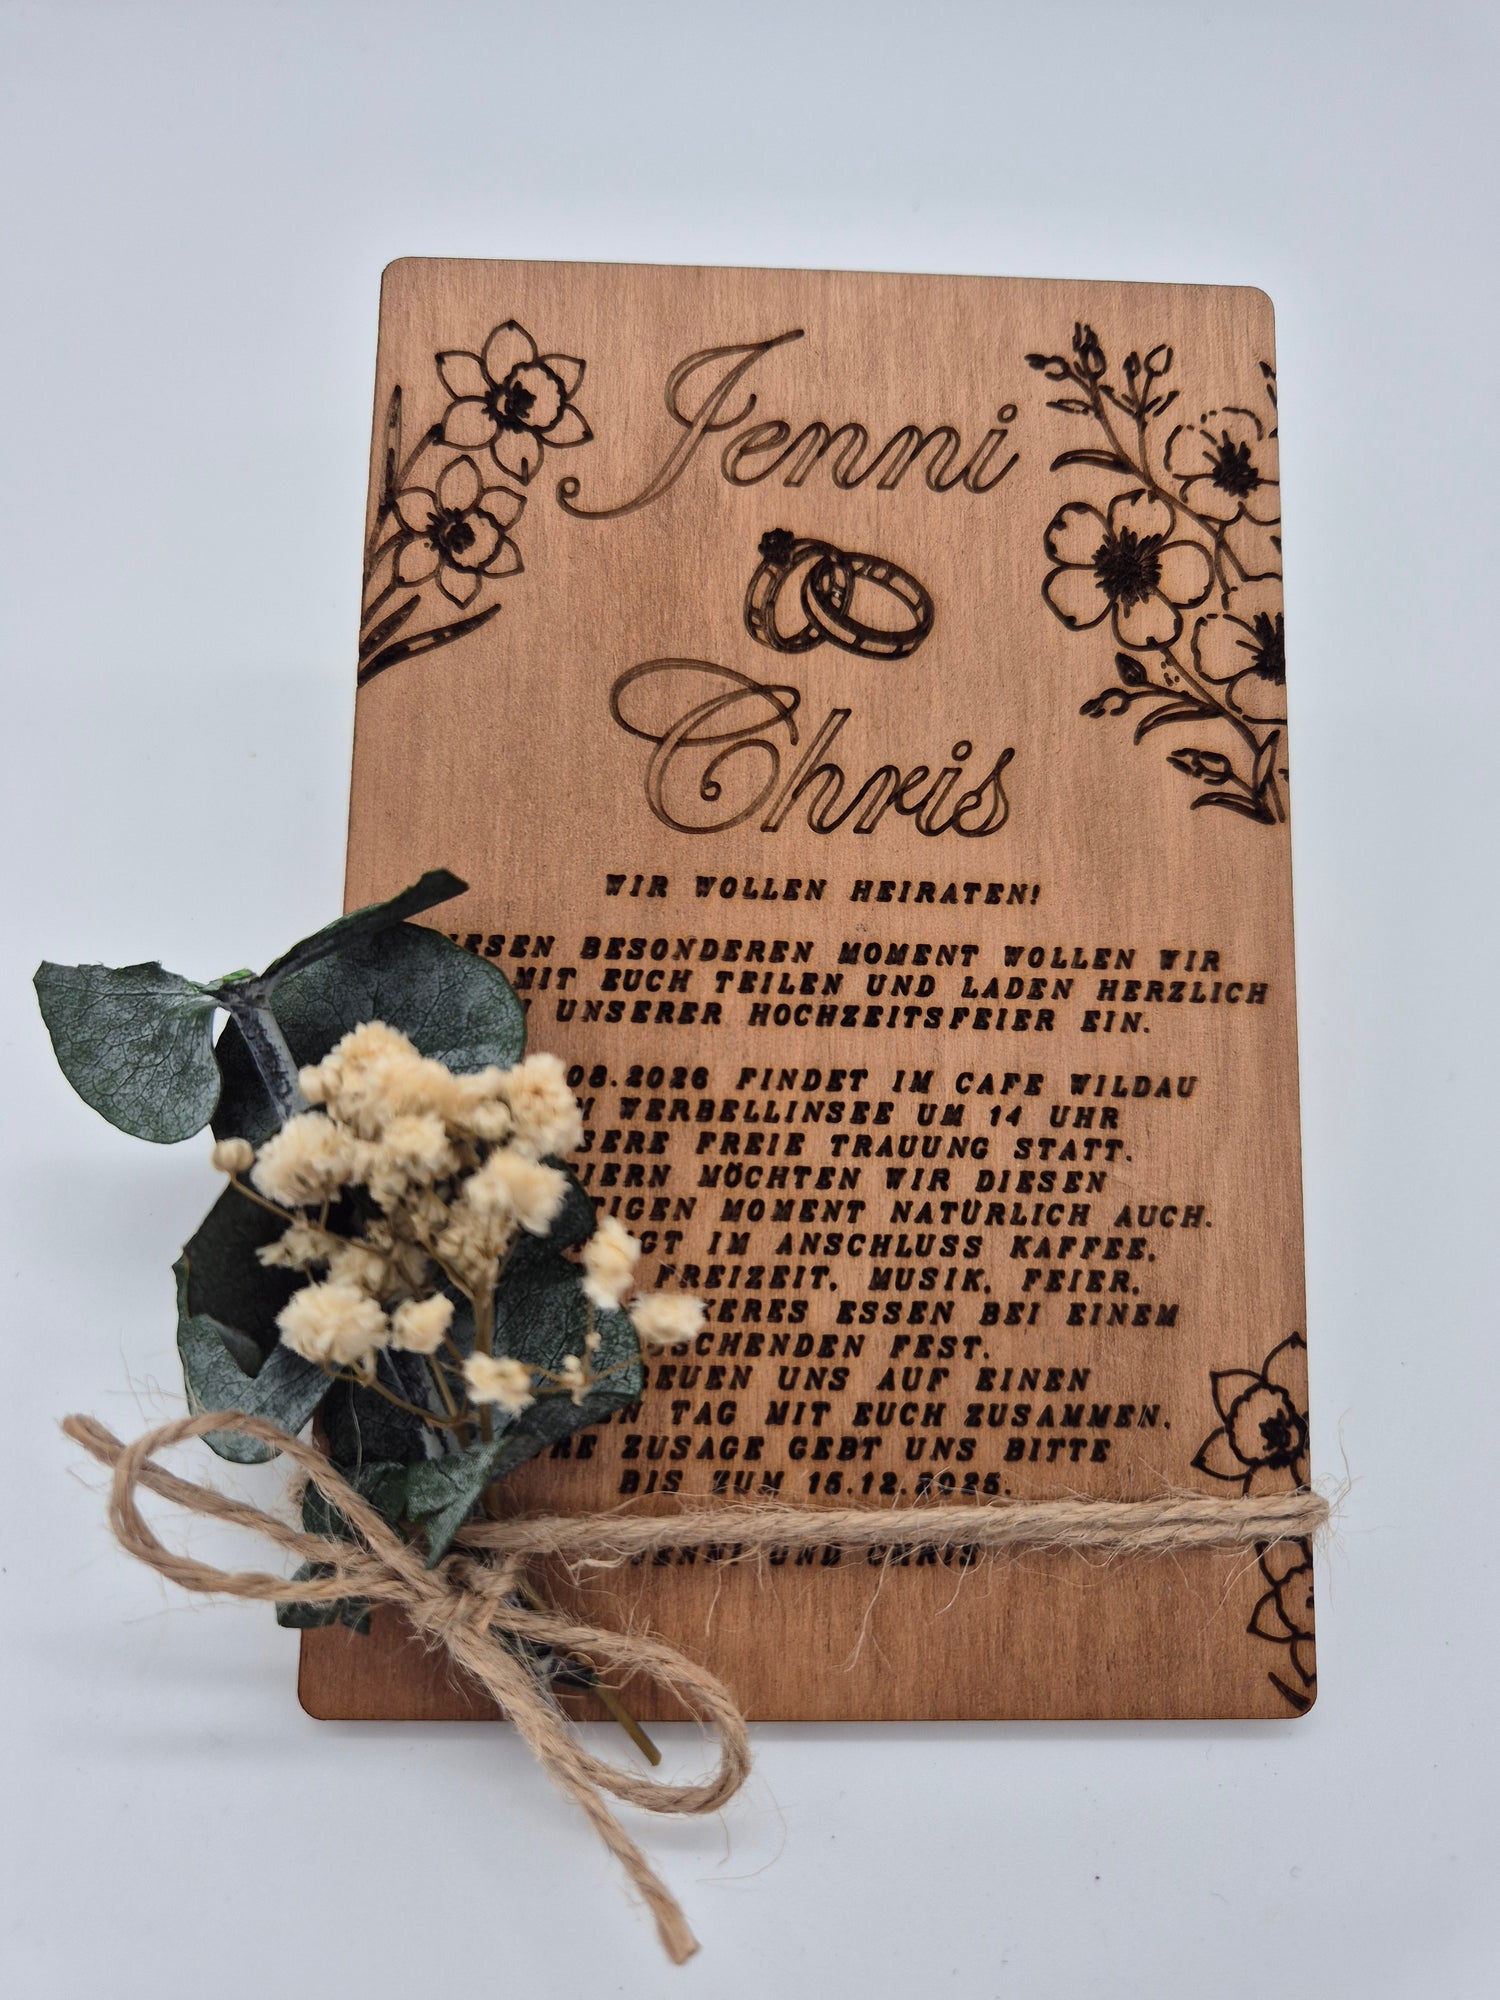 Jenni
Chris
WIR WOLLEN HEIRATEN!
BESONDEREN MOMENT WOLLEN WIR
MIT EUCH TEILEN UND LADEN HERZLICH
UNSERER HOCHZEITSFEIER EIN.
08.2026 FINDET IM CAFE WILDAU
WERBELLINSEE UM 14 UHR
FREIE TRAUUNG STATT.
MÖCHTEN WIR DIESEN
MOMENT NATÜRLICH AUCH.
IM ANSCHLUSS KAFFEE,
FREIZEIT, MUSIK, FEIER,
ESSEN BEI EINEM
FEST.
UNS AUF EINEN
TAG MIT EUCH ZUSAMMEN.
ZUSAGE GEBT UNS BITTE
BIS ZUM 15.12.2025.
JENNI UND CHRIS